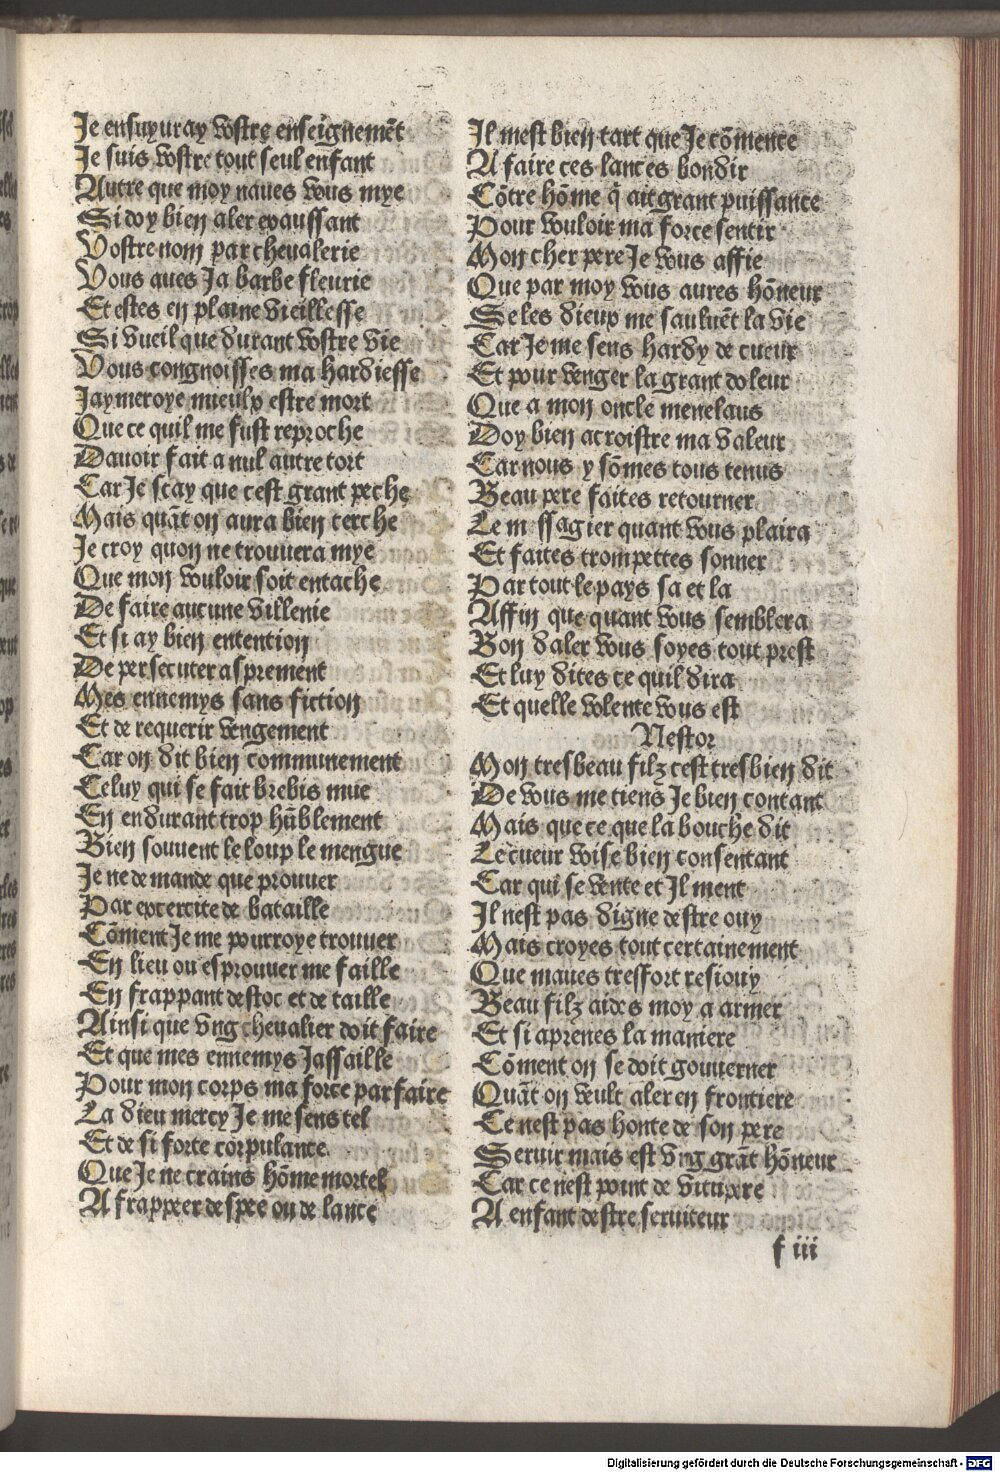 Je ensuyuray vostre enseignemēt
Je suis vostre tout seul enfant
Autre que moy naues vous mye
Si doy bien aler epaussant
Vostre nom par cheualerie
Vous aues Ja barbe fleurie
Et estes en plaine vieillesse
Si vueil que durant vostre vie
Vous congnoisses ma hardiesse
Jaymeroye mieulx estre mort
Que ce quil me fust reproche
Dauoir fait a nul autre tort
Car Je scay que cest grant peche
Mais quāt on aura bien cerche
Je croy quon ne trouuera mye
Que mon vouloir soit entache
De faire aucune villenie
Et si ay bien entention
De persecuter asprement
Mes ennemys sans fiction
Et de requerir vengement
Car on dit bien communement
Celuy qui se fait brebis mue
En endurant trop hūblement
Bien souuent le loup le mengue
Je ne demande que prouuer
Par excercite de bataille
Cōment Je me pourroye trouuer
En lieu ou esprouuer me faille
En frappant destoc et de taille
Ainsi que vng cheualier doit faire
Et que mes ennemys Jassaille
Pour mon corps ma force parfaire
La dieu mercy Je me sens tel
Et de si forte corpulance
Que Je ne crains hōme mortel
A frapper despee ou de lance
Il mest bien tart que Je cōmence
A faire ces lances bondir
Cōtre hōme q̄ ait grant puissance
Pour vouloir ma force sentir
Mon cher pere Je vous affie
Que par moy vous aures hōneur
Se les dieup me sauluēt la vie
Car Je me sens hardy de cueur
Et pour venger la grant doleur
Que a mon oncle menelaus
Doy bien acroistre ma valeur
Car nous y sōmes tous tenus
Beau pere faites retourner
Le m ssagier quant vous plaira
Et faites trompettes sonner
Par tout le pays sa et la
Affin que quant vous semblera
Bon daler vous soyes tout prest
Et luy dites ce quil dira
Et quelle volente vous est
Nestor
Mon tresbeau filz cest tresbien dit
De vous me tiens Je bien contant
Mais que ce que la bouche dit
Le cueur voise bien consentant
Car qui se vente et Il ment
Il nest pas digne destre ouy
Mais croyes tout certainement
Que maues tresfort resiouy
Beau filz aides moy a armer
Et si aprenes la maniere
Cōment on se doit gouuerner
Quāt on veult aler en frontiere
Ce nest pas honte de son pere
Seruir mais est vng grāt hōneur
Car ce nest point de vitupere
A enfant destre seruiteur
f iii
Digitalisierung gefördert durch die Deutsche Forschungsgemeinschaft - DFG